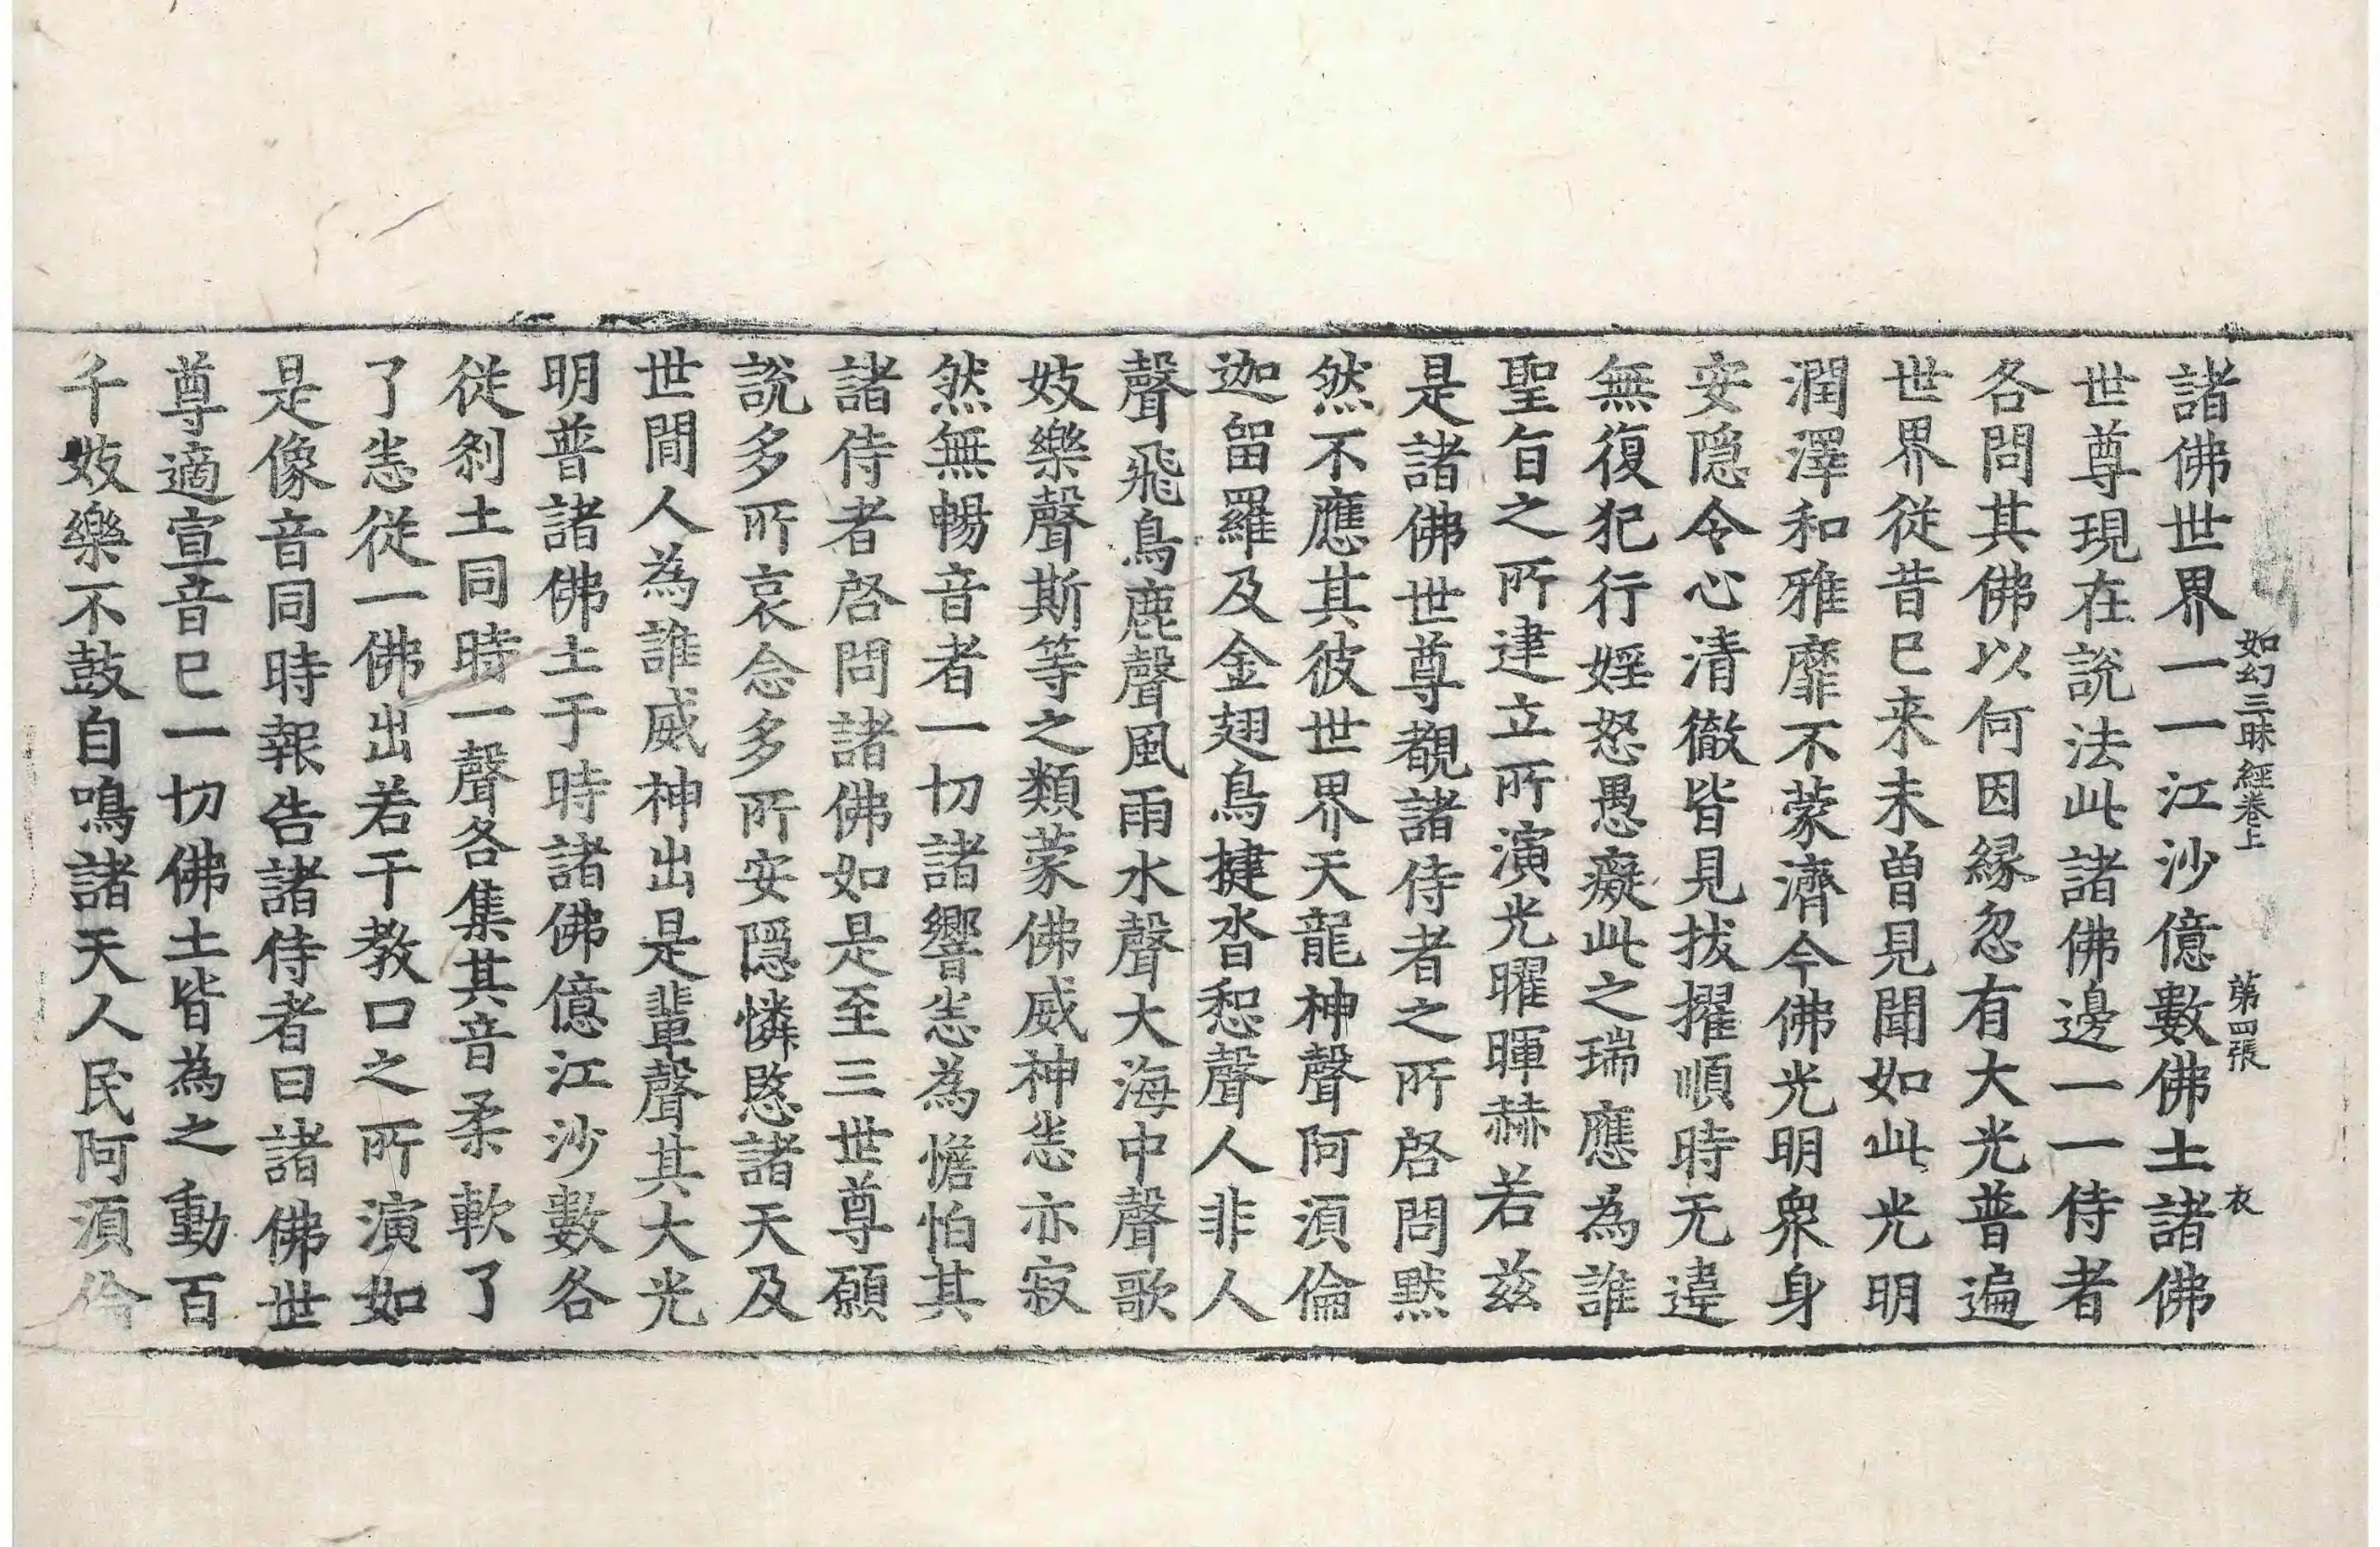 如幻三昧經卷上 第四張 衣
諸佛世界一一江沙億數佛土諸佛
世尊現在說法此諸佛邊一一侍者
各問其佛以何因緣忽有大光普遍
世界從昔已來未曾見聞如此光明
潤澤和雅靡不蒙濟今佛光明衆身
安隱令心清徹皆見拔擢順時无違
無復犯行婬怒愚癡此之瑞應為誰
聖旨之所建立所演光曜暉赫若茲
是諸佛世尊覩諸侍者之所啓問默
然不應其彼世界天龍神聲阿須倫
迦留羅及金翅鳥揵沓惒聲人非人
聲飛鳥鹿聲風雨水聲大海中聲歌
妓樂聲斯等之類蒙佛威神恣亦寂
然無暢音者一切諸響恣為憺怕其
諸侍者啓問諸佛如是至三世尊願
說多所哀念多所安隱憐愍諸天及
世間人為誰威神出是輩聲其大光
明普諸佛土于時諸佛億江沙數各
從剎土同時一聲各集其音柔軟了
了恣從一佛出若干教口之所演如
是像音同時報告諸侍者曰諸佛世
尊適宣音已一切佛土皆為之動百
千妓樂不鼓自鳴諸天人民阿須倫